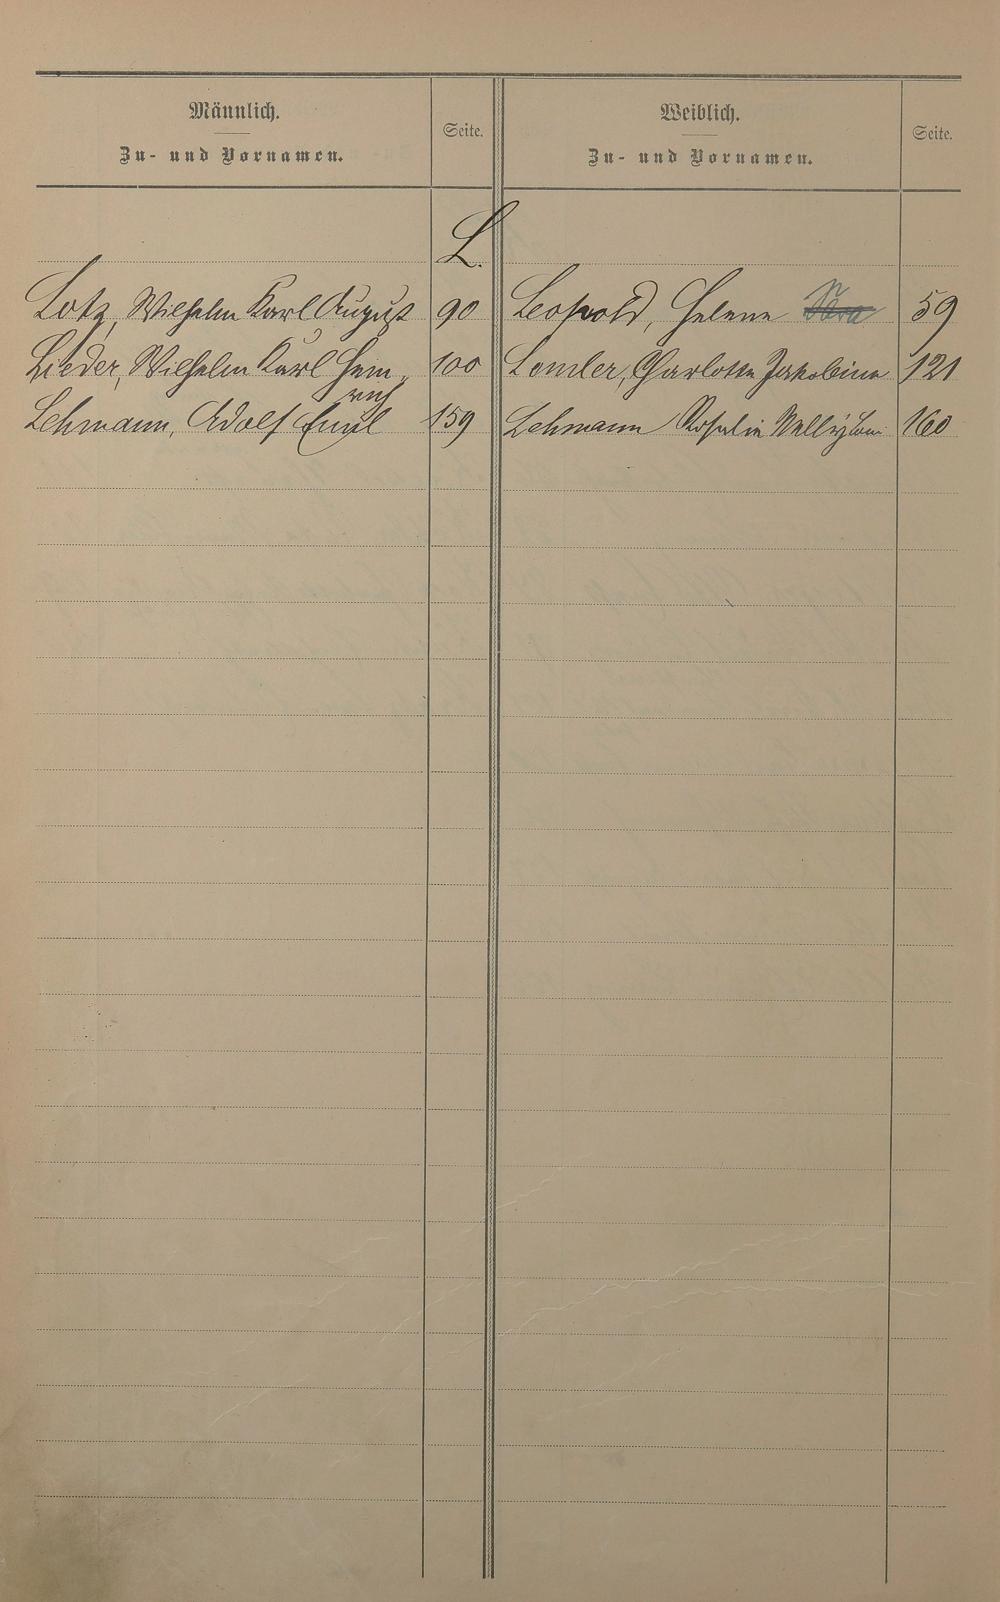 Männlich.
Zu- und Vornamen.
Seite.
Weiblich.
Zu- und Vornamen.
Seite.
L.
Lotz, Wilhelm Karl August 90
Leopold, Helene Sara 59
Lieder, Wilhelm Karl Hein- 100
rich
Lomler, Charlotte Jakobine 121
Lehmann, Adolf Emil 159
Lehmann Rosalie 160